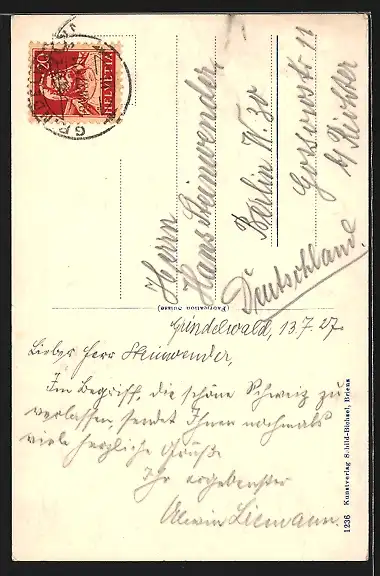 20
HELVETIA
Herrn
Hans Steinwender
Berlin W. 30
Gossowstr 11
b/ Richter
Deutschland.
(Fabrication Suisse)
Grindelwald, 13.7.27.
Lieber Herr Steinwender,
Im Begriff, die schöne Schweiz zu
verlassen, sendet Ihnen nochmals
viele herzliche Grüße
Ihr ergebenster
Liemann.
1236 Kunstverlag Schild-Bichsel, Brienz